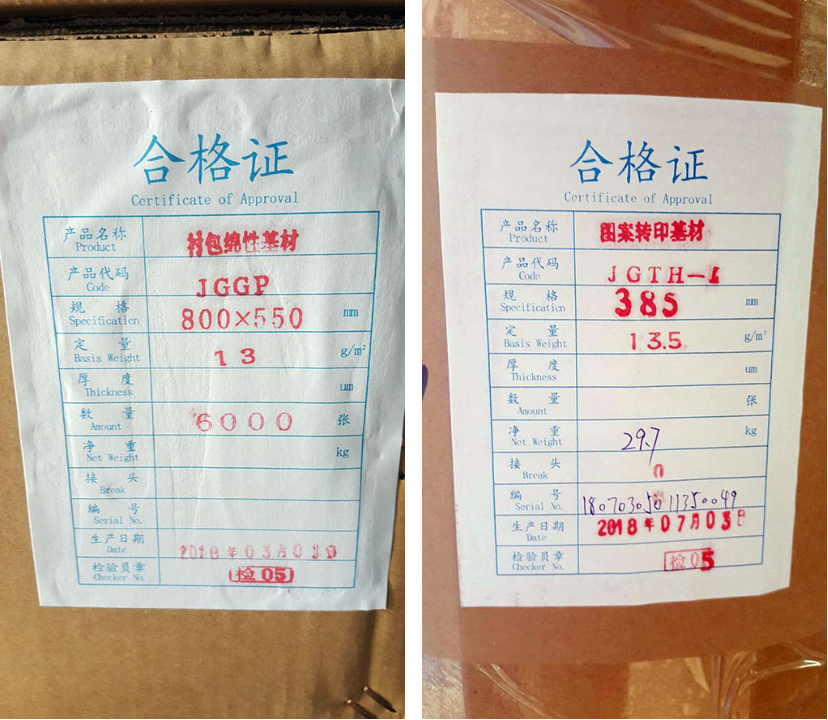 合格证
Certificate of Approval
产品名称
Product
衬包绵性基材
产品代码
Code
JGGP
规 格
Specification
800×550 mm
定 量
Basis Weight
13 g/m²
厚 度
Thickness
um
数 量
Amount
6000 张
净 重
Net Weight
kg
接 头
Break
编 号
Serial No.
生产日期
Date
2018年03月03日
检验员章
Checker No.
检05
合格证
Certificate of Approval
产品名称
Product
图案转印基材
产品代码
Code
JGTH-1
规 格
Specification
385 mm
定 量
Basis Weight
13.5 g/m²
厚 度
Thickness
um
数 量
Amount
张
净 重
Net Weight
29.7 kg
接 头
Break
0
编 号
Serial No.
18070305011350049
生产日期
Date
2018年07月03日
检验员章
Checker No.
检05